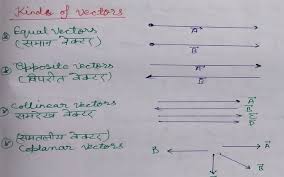 Kinds of Vectors
① Equal Vectors
(समान वेक्टर)
A
B
② Opposite Vectors
(विपरीत वेक्टर)
A
B
Collinear Vectors
समरेख वेक्टर
A
B
C
(समतलीय वेक्टर)
Coplanar Vectors
B
A